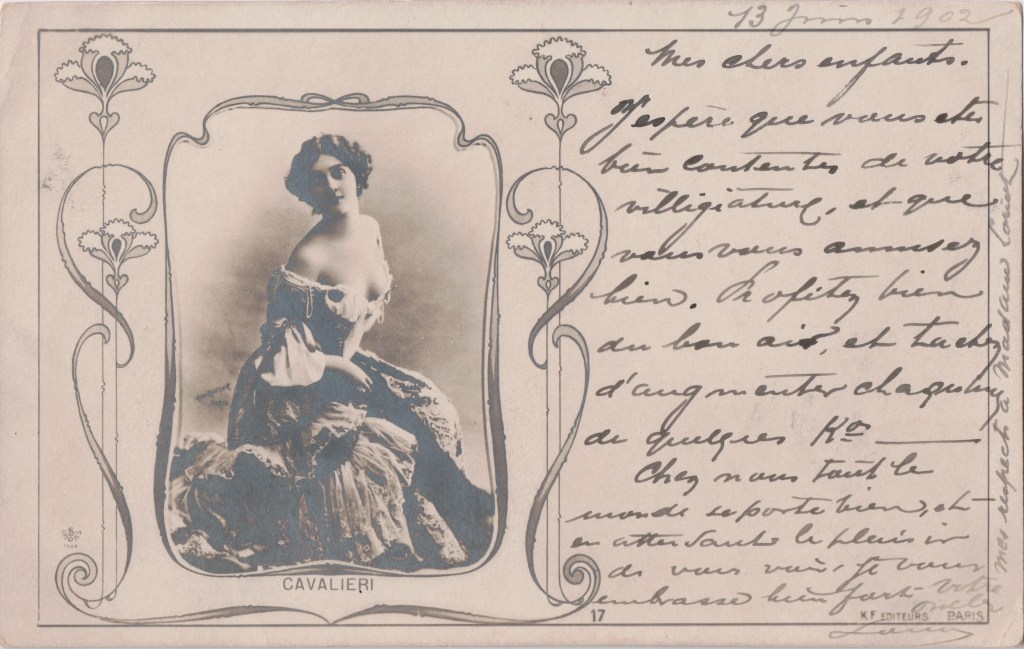 13 Juin 1902
Mes chers enfants.
J'espère que vous etes
bien contentes de votre
villigiature, et que
vous vous amusez
bien. Profitez bien
du bon air, et tachez
d'augmenter chaqu'une
de quelques Kos
Chez nous tout le
monde se porte bien, et
en attendant le plaisir
de vous voir, je vous
embrasse bien fort
Mes respects à Madame
CAVALIERI
17
K.F. EDITEURS PARIS